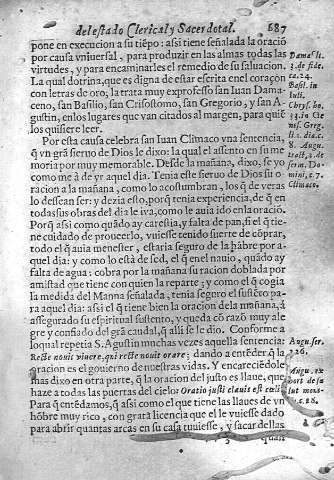 del estado Clerical, y Sacerdotal. 687
pone en execucion a su tiẽpo: assi tiene señalada la oració
por causa vniuersal, para produzir en las almas todas las
virtudes, y para encaminarles el remedio de su saluacion.
La qual dotrina, que es digna de estar escrita enel coraçon
con letras de oro, la trata muy exprofesso san Iuan Dama-
ceno, san Basilio, san Crisostomo, san Gregorio, y san A-
gustin, en los lugares que van citados al margen, para quie
los quisiere leer.
Por esta causa celebra san Iuan Climaco vna sentencia,
q̃ vn grã sieruo de Dios le dixo: la qual el assento en su me
moria por muy memorable. Desde la mañana, dixo, se yo
como me á de yr aquel dia. Tenia este sieruo de Dios su o-
racion a la mañana, como lo acostumbran, los q̃ de veras
lo dessean ser: y dezia esto, porq̃ tenia experiencia, de q̃ en
todas sus obras del dia le iva, como le auia ido en la oració.
Porq̃ assi como quãdo ay carestia, y falta de pan, si el q̃ tie-
ne cuidado de proueerlo, vuiesse tenido suerte de cõprar,
todo el q̃ auia menester, estaria seguro de la hãbre por a-
quel dia: y como lo està de sed, el q̃ en el nauio, quãdo ay
falta de agua: cobra por la mañana su racion doblada por
amistad que tiene con quien la reparte; y como el q̃ cogia
la medida del Manna señalada, tenia seguro el sustẽto pa-
ra aquel dia: assi el q̃ tiene bien la oracion de la mañana, á
assegurado su espiritual sustento, y queda cõ razõ muy ale
gre y confiado del grã caudal, q̃ alli se le dio. Conforme a
loqual repetia S. Agustin muchas vezes aquella sentencia:
Recte nouit viuere, qui recte nouit orare; dando a entẽder q̃ la
oracion es el gouierno de nuestras vidas. Y encareciẽdole
mas dixo en otra parte, q̃ la oracion del justo es llaue, que
haze a todas las puertas del cielo: Oratio justi clauis est cœli.
Para q̃ entẽdamos, q̃ assi como el que tiene las llaues de vn
hõbre muy rico, con gratá licencia que el le vuiesse dado
para abrir quantas arcas en su casa tuuiesse, y sacar dellas
Damas. l.
3. de fide.
ca. 24.
Basil. in
Iuli.
Chrys. ho.
Greg.
8. Augu.
Climaco.
Augu. ser.
226.
Augu. ex